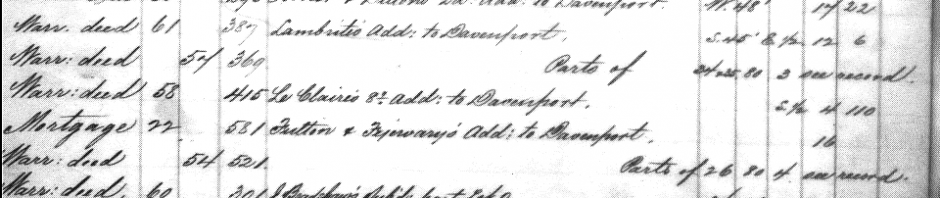 Add: to Davenport. W. 48' 14 22
Warr. deed 61 387 Lambrites Add: to Davenport, S. 45' E ½ 12 6
Warr: deed 54 369 Parts of 34 & 25. 80 3 see record.
Warr: deed 58 415 Le Claire's 8th Add: to Davenport. S ½ 4 110
Mortgage 22 581 Fulton & Fejervary's Add: to Davenport. 16
Warr: deed 54 521. Parts of 26 80 4. see record.
Warr: deed, 60